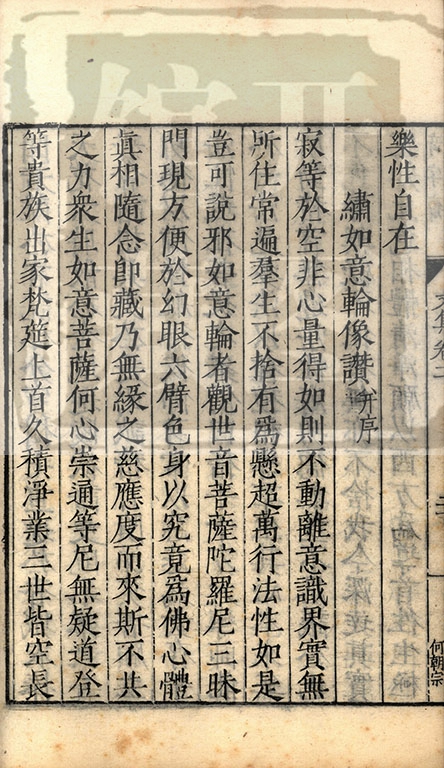 樂性自在
繡如意輪像讃并序
寂等於空非心量得如則不動離意識界實無
所住常遍羣生不捨有爲懸超萬行法性如是
豈可說邪如意輪者觀世音菩薩陀羅尼三昧
門現方便於幻眼六臂色身以究竟爲佛心體
眞相隨念即藏乃無緣之慈應度而來斯不共
之力衆生如意菩薩何心崇通等尼無疑道登
等貴族出家梵筵上首久積淨業三世皆空長
何朝宗